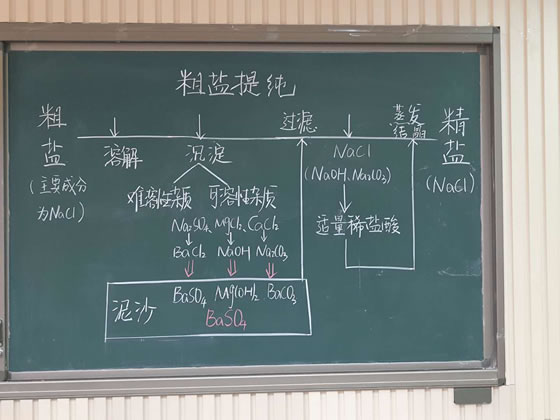 粗盐提纯
粗盐
(主要成分为NaCl)
溶解
沉淀
过滤
蒸发结晶
精盐
(NaCl)
难溶性杂质
可溶性杂质
Na₂SO₄ MgCl₂ CaCl₂
BaCl₂ NaOH Na₂CO₃
泥沙
BaSO₄ Mg(OH)₂ BaCO₃
BaSO₄
NaCl
(NaOH、Na₂CO₃)
适量稀盐酸